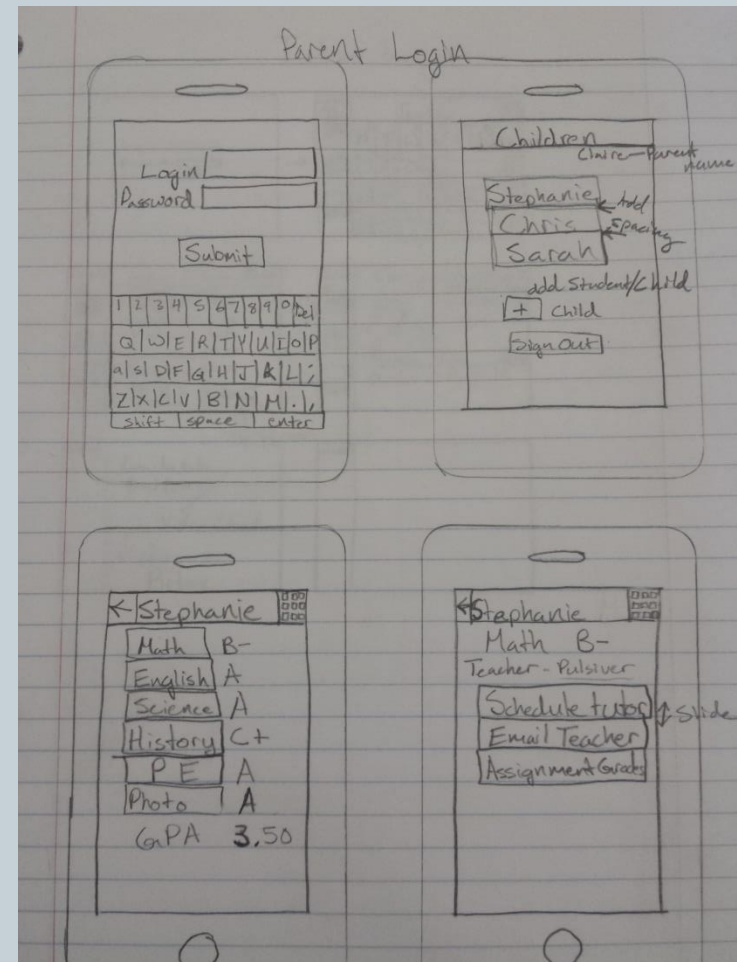 Parent Login
Login
Password
Submit
1 2 3 4 5 6 7 8 9 0 Del
Q W E R T Y U I O P
a S D F G H J K L ;
Z X C V B N M . ,
shift space enter
Children
Claire - Parent name
Stephanie
Chris
Sarah
Add Spacing
add Student/Child
+ Child
Sign Out
← Stephanie
Math B-
English A
Science A
History C+
PE A
Photo A
GPA 3.50
← Stephanie
Math B-
Teacher - Pulsiver
Schedule tutor
Slide
Email Teacher
Assignment Grades